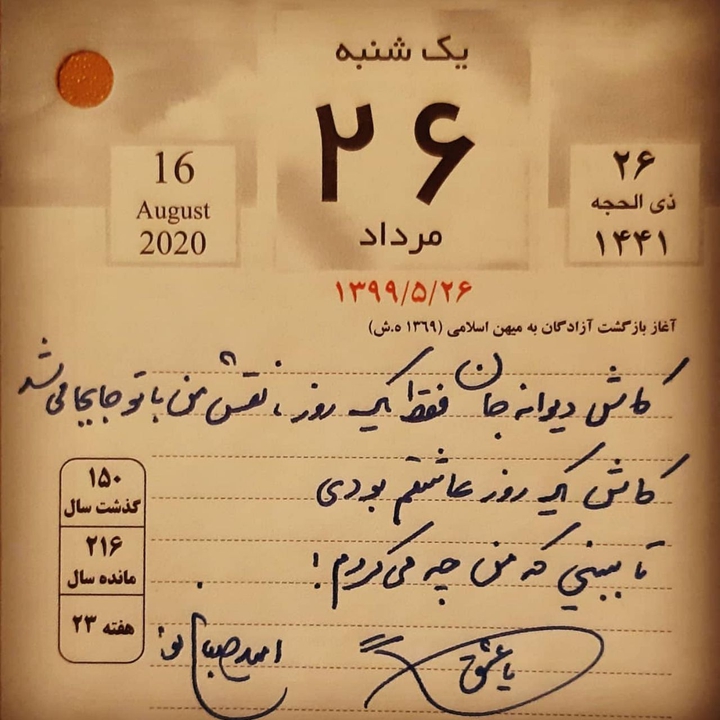 یک شنبه
۲۶
مرداد
۱۳۹۹/۵/۲۶
۲۶
ذی الحجه
۱۴۴۱
16
August
2020
آغاز بازگشت آزادگان به میهن اسلامی (۱۳۶۹ ه.ش)
کاش دیوانه جان فقط یک روز، نقش من با تو جابجا می شد
کاش یک روز عاشقم بودی
تا ببینی که من چه می کردم!
یا عشق
امید صباغ نو
۱۵۰
گذشت سال
۲۱۶
مانده سال
هفته ۲۳